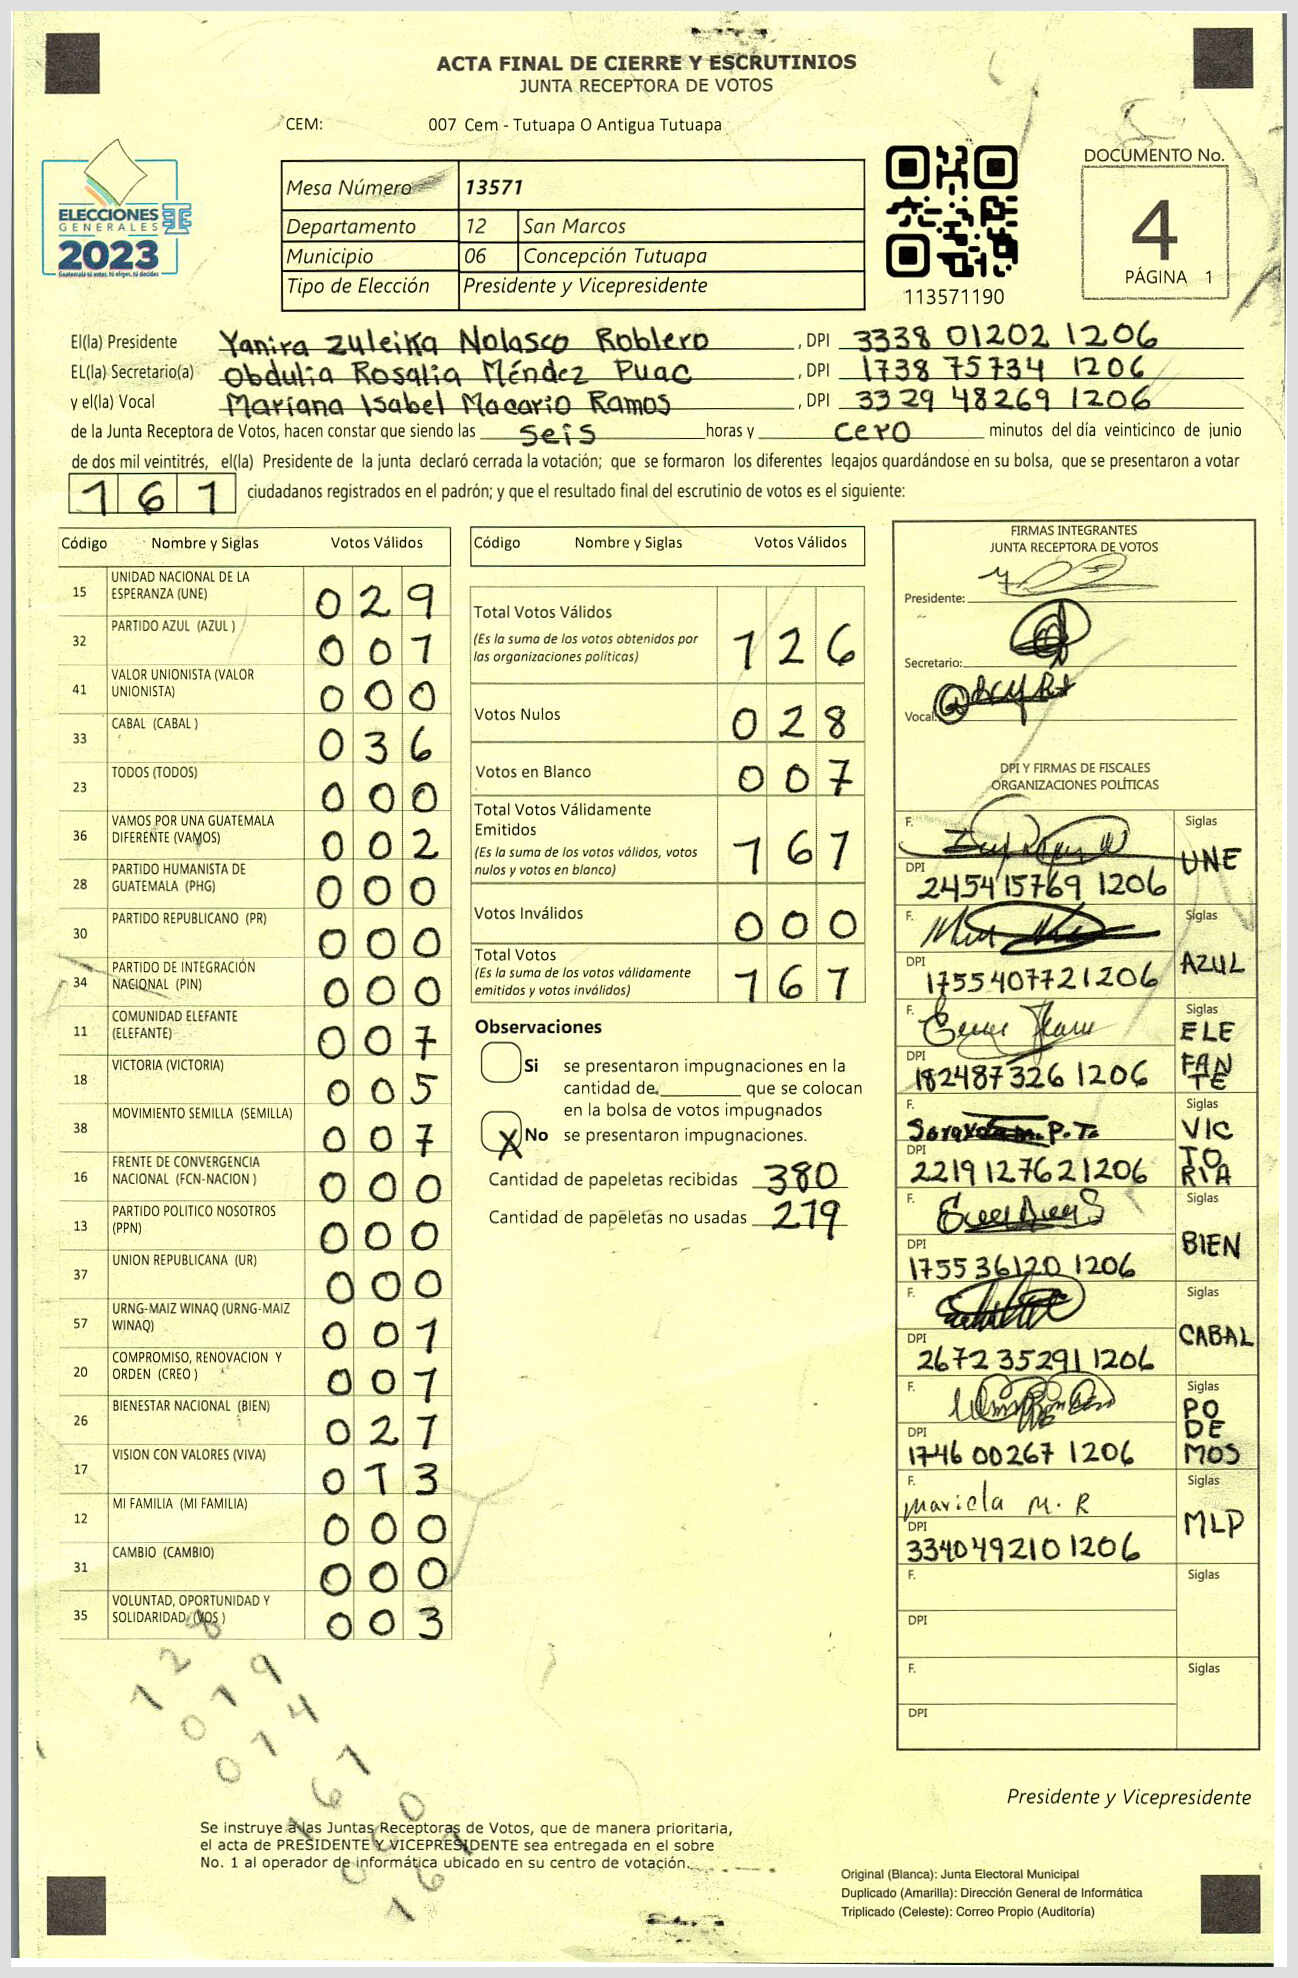 ACTA FINAL DE CIERRE Y ESCRUTINIOS
JUNTA RECEPTORA DE VOTOS
CEM: 007 Cem - Tutuapa O Antigua Tutuapa
ELECCIONES
GENERALES
2023
Guatemala tú votas, tú eliges, tú decides
Mesa Número 13571
Departamento 12 San Marcos
Municipio 06 Concepción Tutuapa
Tipo de Elección Presidente y Vicepresidente
113571190
DOCUMENTO No.
4
PÁGINA 1
El(la) Presidente Yanira Zuleika Nolasco Roblero, DPI 3338 01202 1206
EL(la) Secretario(a) Obdulia Rosalia Méndez Puac, DPI 1738 75734 1206
y el(la) Vocal Mariana Isabel Macario Ramos, DPI 3329 48269 1206
de la Junta Receptora de Votos, hacen constar que siendo las seis horas y cero minutos del día veinticinco de junio
de dos mil veintitrés, el(la) Presidente de la junta declaró cerrada la votación; que se formaron los diferentes legajos guardándose en su bolsa, que se presentaron a votar
161 ciudadanos registrados en el padrón; y que el resultado final del escrutinio de votos es el siguiente:
Código Nombre y Siglas Votos Válidos
15 UNIDAD NACIONAL DE LA ESPERANZA (UNE) 029
32 PARTIDO AZUL (AZUL ) 001
41 VALOR UNIONISTA (VALOR UNIONISTA) 000
33 CABAL (CABAL ) 036
23 TODOS (TODOS) 000
36 VAMOS POR UNA GUATEMALA DIFERENTE (VAMOS) 002
28 PARTIDO HUMANISTA DE GUATEMALA (PHG) 000
30 PARTIDO REPUBLICANO (PR) 000
34 PARTIDO DE INTEGRACIÓN NACIONAL (PIN) 000
11 COMUNIDAD ELEFANTE (ELEFANTE) 007
18 VICTORIA (VICTORIA) 005
38 MOVIMIENTO SEMILLA (SEMILLA) 007
16 FRENTE DE CONVERGENCIA NACIONAL (FCN-NACION ) 000
13 PARTIDO POLITICO NOSOTROS (PPN) 000
37 UNION REPUBLICANA (UR) 000
57 URNG-MAIZ WINAQ (URNG-MAIZ WINAQ) 001
20 COMPROMISO, RENOVACION Y ORDEN (CREO ) 001
26 BIENESTAR NACIONAL (BIEN) 021
17 VISION CON VALORES (VIVA) 013
12 MI FAMILIA (MI FAMILIA) 000
31 CAMBIO (CAMBIO) 000
35 VOLUNTAD, OPORTUNIDAD Y SOLIDARIDAD (VOS ) 003
128
019
014
161
000
161
Código Nombre y Siglas Votos Válidos
Total Votos Válidos 126
(Es la suma de los votos obtenidos por
las organizaciones políticas)
Votos Nulos 028
Votos en Blanco 007
Total Votos Válidamente
Emitidos 161
(Es la suma de los votos válidos, votos
nulos y votos en blanco)
Votos Inválidos 000
Total Votos 161
(Es la suma de los votos válidamente
emitidos y votos inválidos)
Observaciones
Si se presentaron impugnaciones en la
cantidad de ________ que se colocan
en la bolsa de votos impugnados
X No se presentaron impugnaciones.
Cantidad de papeletas recibidas 380
Cantidad de papeletas no usadas 219
FIRMAS INTEGRANTES
JUNTA RECEPTORA DE VOTOS
Presidente:
Secretario:
Vocal:
DPI Y FIRMAS DE FISCALES
ORGANIZACIONES POLÍTICAS
F. Siglas UNE
DPI 245415769 1206
F. Siglas AZUL
DPI 1755407721206
F. Siglas ELEFANTE
DPI 182487326 1206
F. Siglas VICTORIA
DPI 2219127621206
F. Siglas BIEN
DPI 175536120 1206
F. Siglas CABAL
DPI 2672 35291 1206
F. Siglas PODEMOS
DPI 1746 00267 1206
F. Mariela M. R Siglas MLP
DPI 3340492101206
F. Siglas
DPI
F. Siglas
DPI
Presidente y Vicepresidente
Se instruye a las Juntas Receptoras de Votos, que de manera prioritaria,
el acta de PRESIDENTE Y VICEPRESIDENTE sea entregada en el sobre
No. 1 al operador de informática ubicado en su centro de votación.
Original (Blanca): Junta Electoral Municipal
Duplicado (Amarilla): Dirección General de Informática
Triplicado (Celeste): Correo Propio (Auditoría)